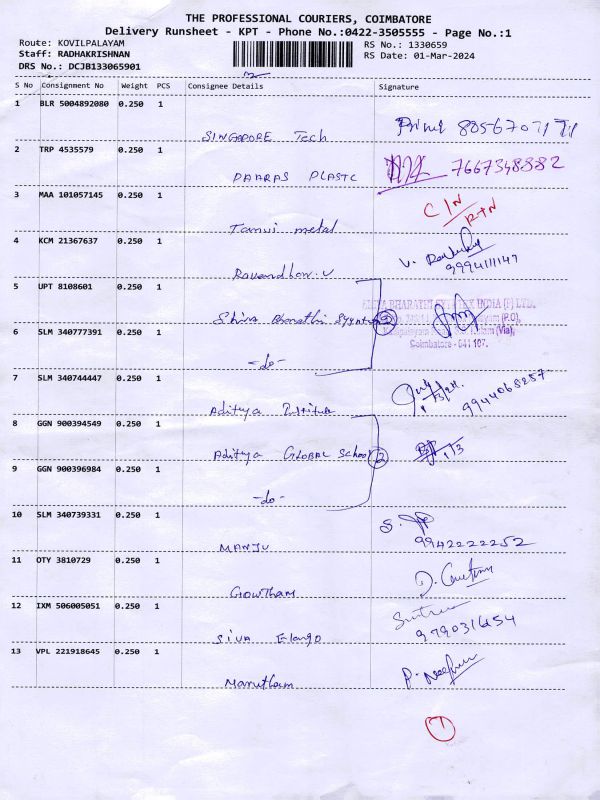 THE PROFESSIONAL COURIERS, COIMBATORE
Delivery Runsheet - KPT - Phone No.:0422-3505555 - Page No.:1
Route: KOVILPALAYAM
RS No.: 1330659
Staff: RADHAKRISHNAN
RS Date: 01-Mar-2024
DRS No.: DCJB133065901
S No Consignment No Weight PCS Consignee Details Signature
1 BLR 5004892080 0.250 1
SINGAPORE Tech
2 TRP 4535579 0.250 1
7667348882
PAARAS PLASTC
3 MAA 101057145 0.250 1
C/N
R+N
Tamvi metal
4 KCM 21367637 0.250 1
9994111147
5 UPT 8108601 0.250 1
Shiva Bharathi
2
Coimbatore - 641 107.
6 SLM 340777391 0.250 1
-do-
7 SLM 340744447 0.250 1
9944068257
Aditya
8 GGN 900394549 0.250 1
Aditya GLOBAL School 2
1/3
9 GGN 900396984 0.250 1
-do-
10 SLM 340739331 0.250 1
S.
9942222252
MANJU
11 OTY 3810729 0.250 1
Gowtham
12 IXM 506005051 0.250 1
SIVA Elango
13 VPL 221918645 0.250 1
P.
Marutham
1